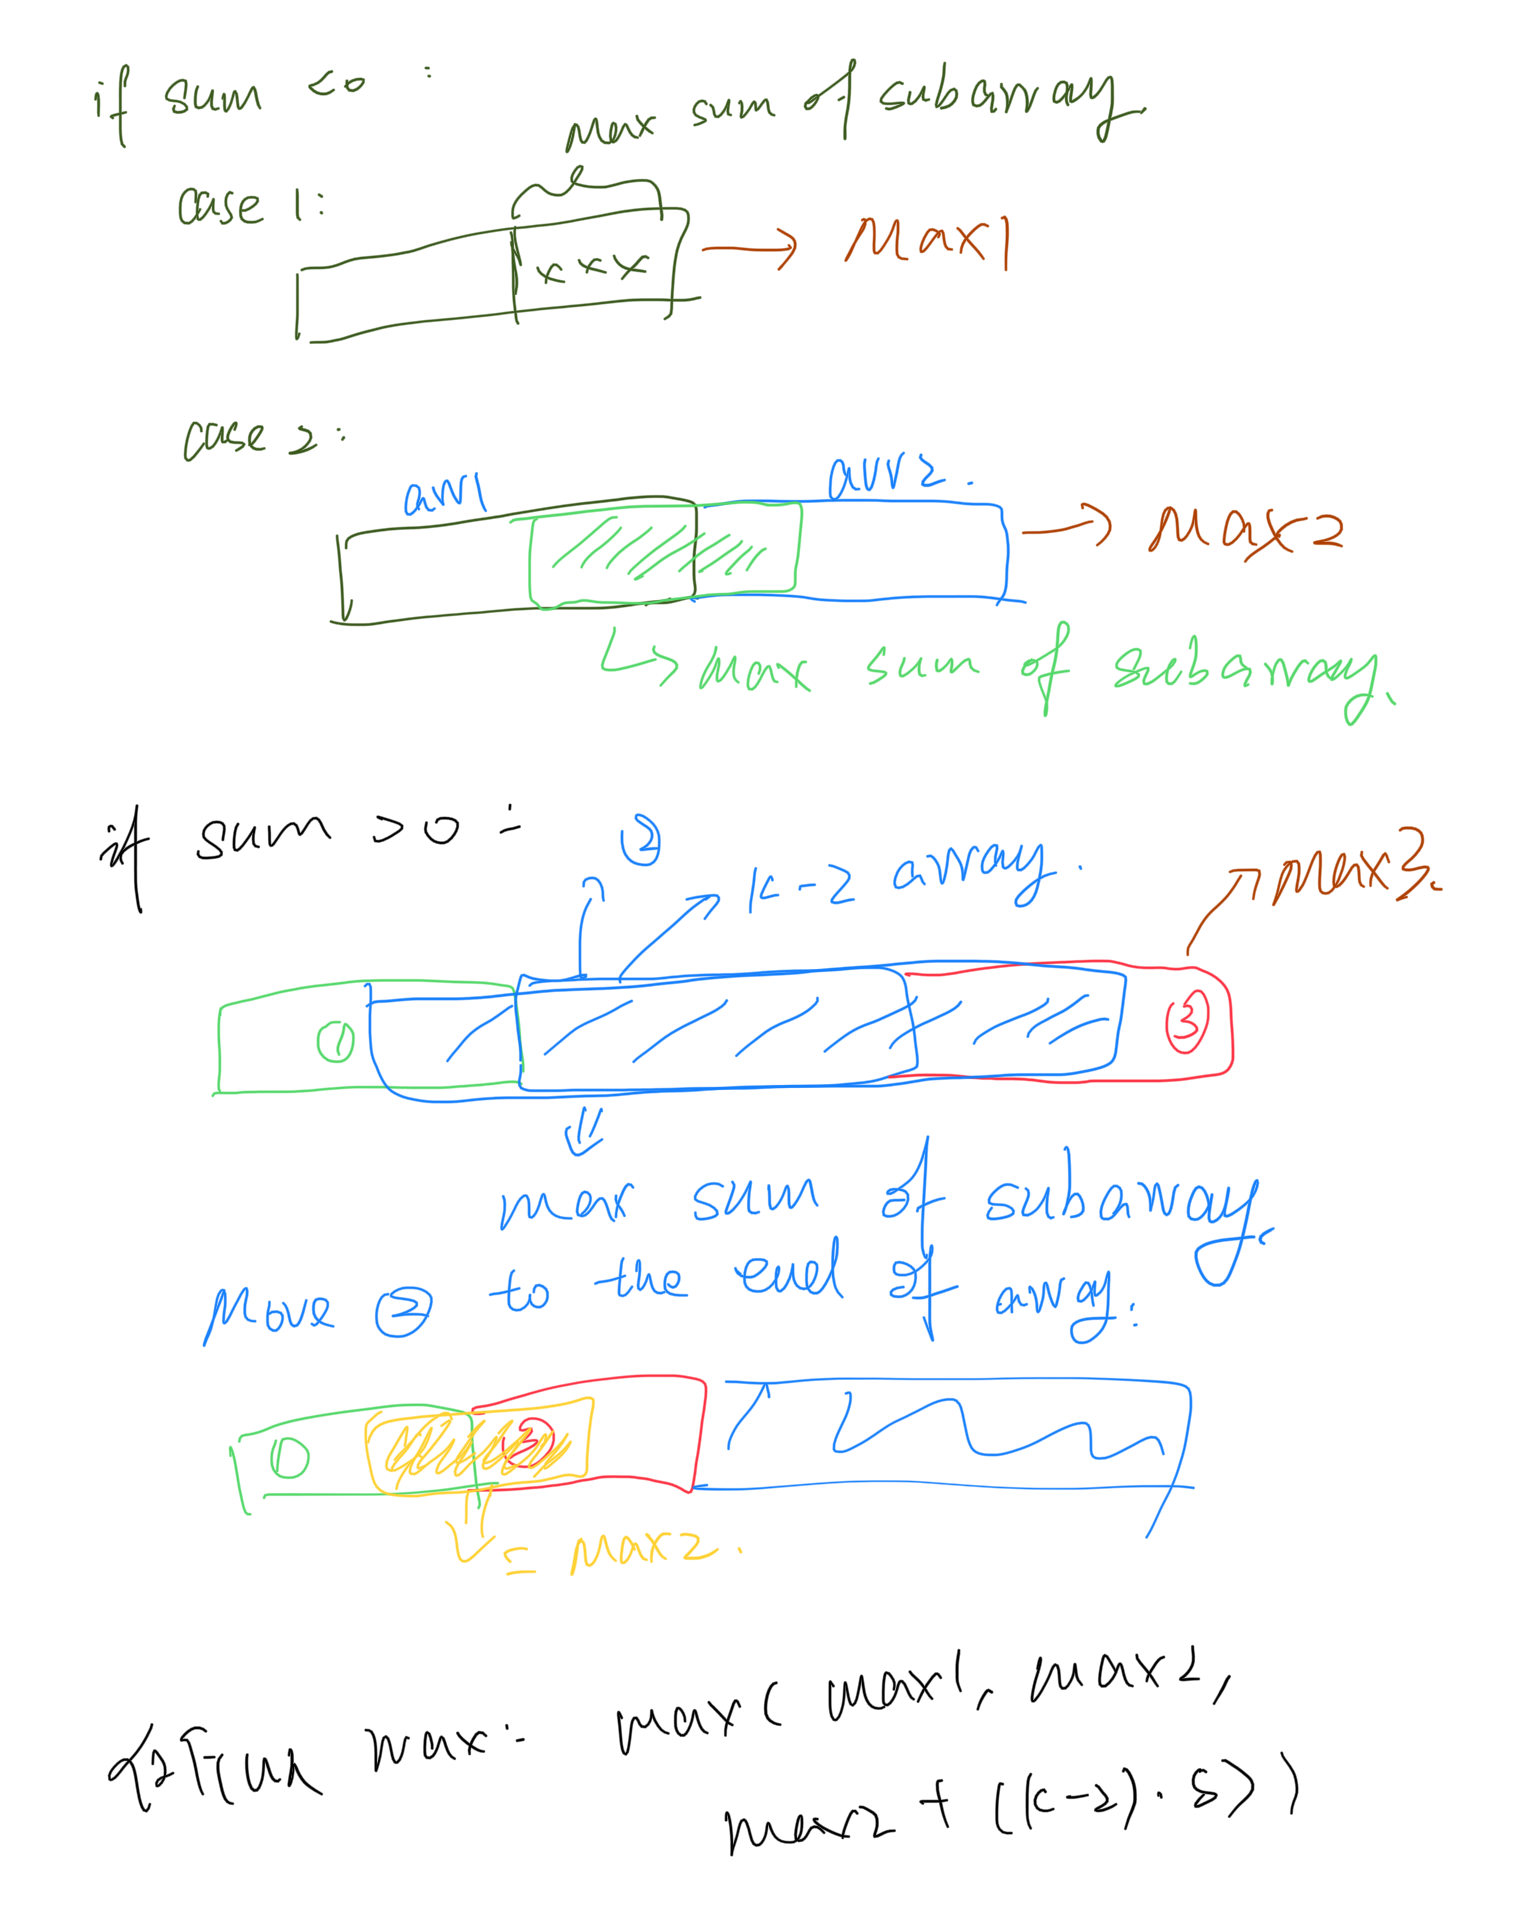 if sum <0 :
max sum of subarray
case 1:
xxx
Max1
case 2:
arr1
arr2.
Max2
max sum of subarray.
if sum >0 :
②
k-2 array.
Max3.
①
③
max sum of subarray.
Move ② to the end of array:
①
③
= Max2.
max: max( max1, max2,
max2 + ((k-2) · S))